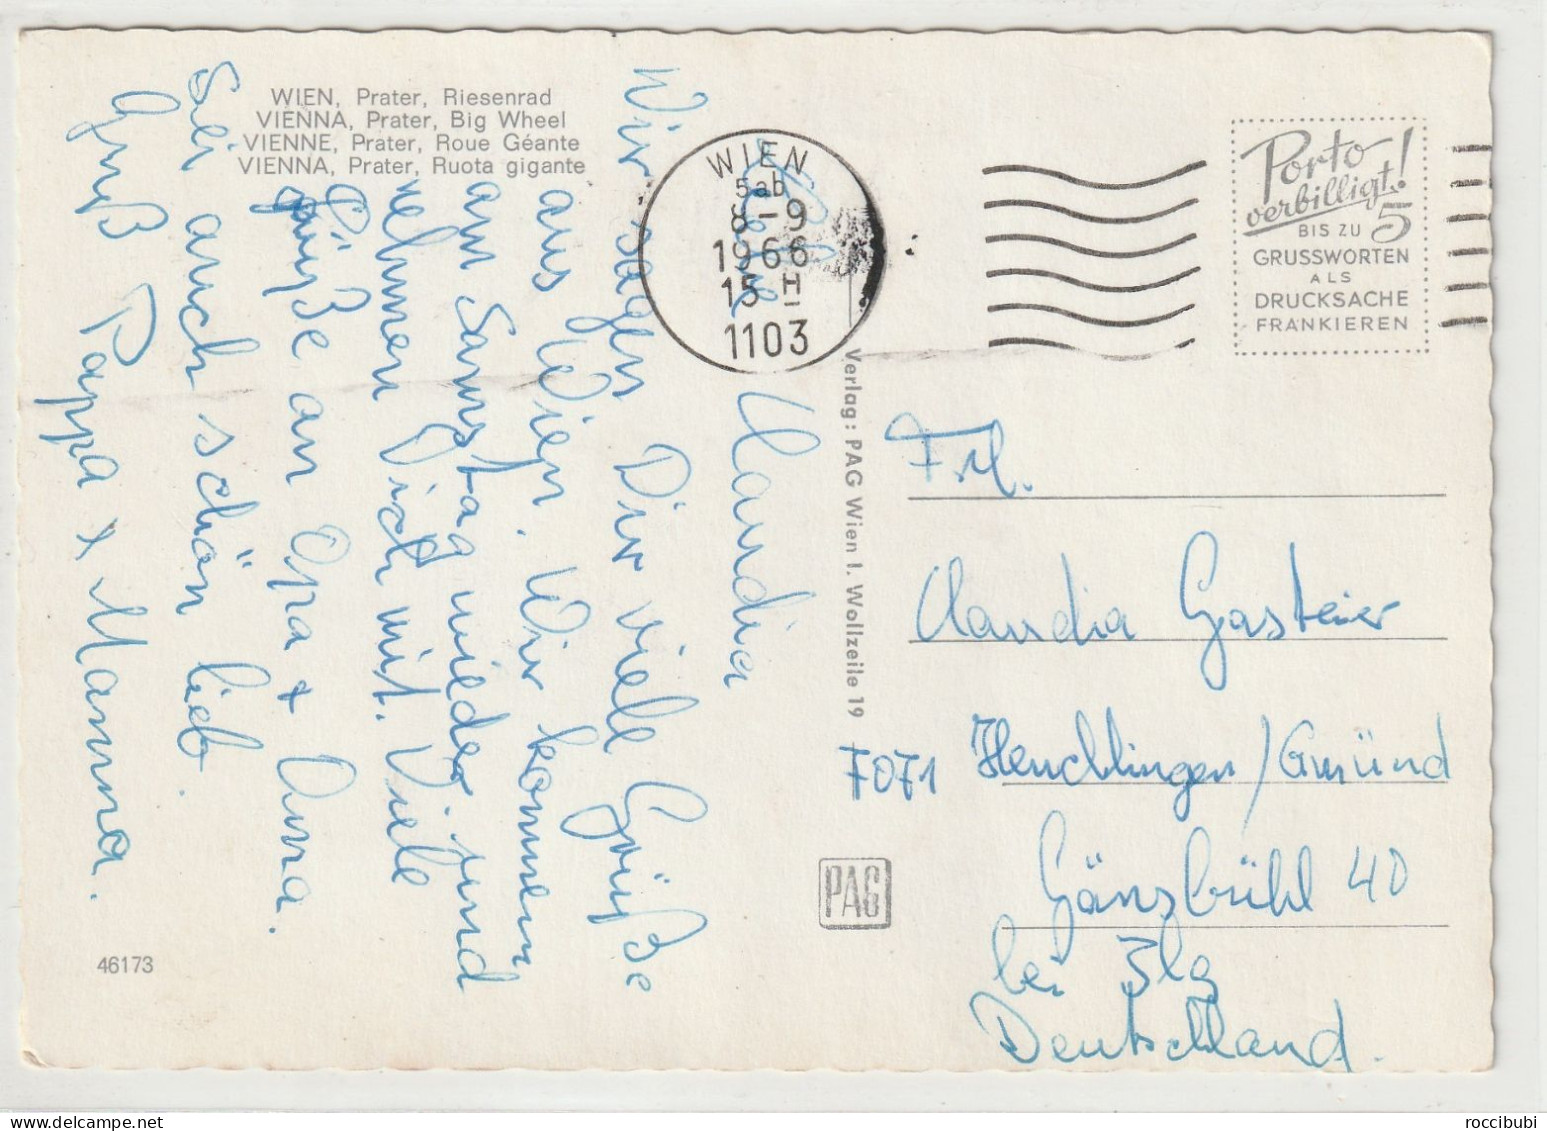 WIEN, Prater, Riesenrad
VIENNA, Prater, Big Wheel
VIENNE, Prater, Roue Géante
VIENNA, Prater, Ruota gigante
Liebe
Claudia
Wir sagen Dir viele Grüße
aus Wien. Wir kommen
am Samstag wieder und
nehmen Dich mit. Viele
Grüße an Opa + Oma.
Sei auch schön lieb.
Gruß Papa + Mama.
46173
WIEN
5ab
8-9
1966
15 H
1103
Porto
verbilligt!
BIS ZU 5
GRUSSWORTEN
ALS
DRUCKSACHE
FRANKIEREN
Verlag: PAG Wien I. Wollzeile 19
PAG
Frl.
Claudia Gasteier
7071 Heuchlingen/Gmünd
Gänsbühl 40
bei Ilg
Deutschland.
roccibubi